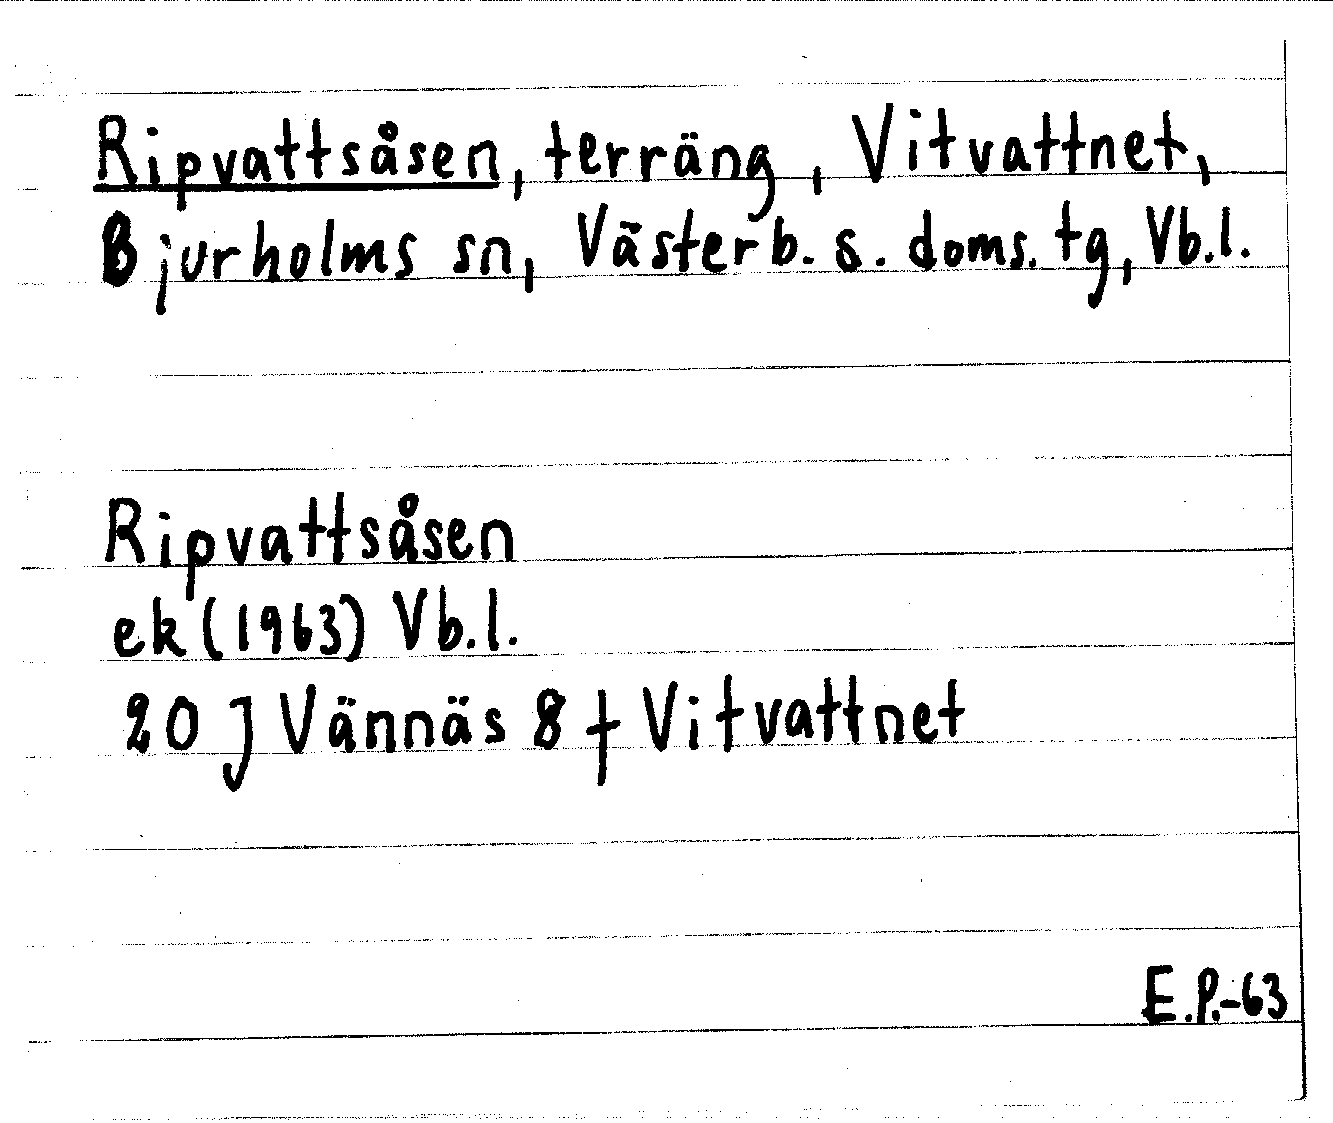 Ripvattsåsen, terräng, Vitvattnet,
Bjurholms sn, Västerb. s. doms. tg, Vb.l.
Ripvattsåsen
ek (1963) Vb.l.
20 J Vännäs 8 f Vitvattnet
E.P.-63